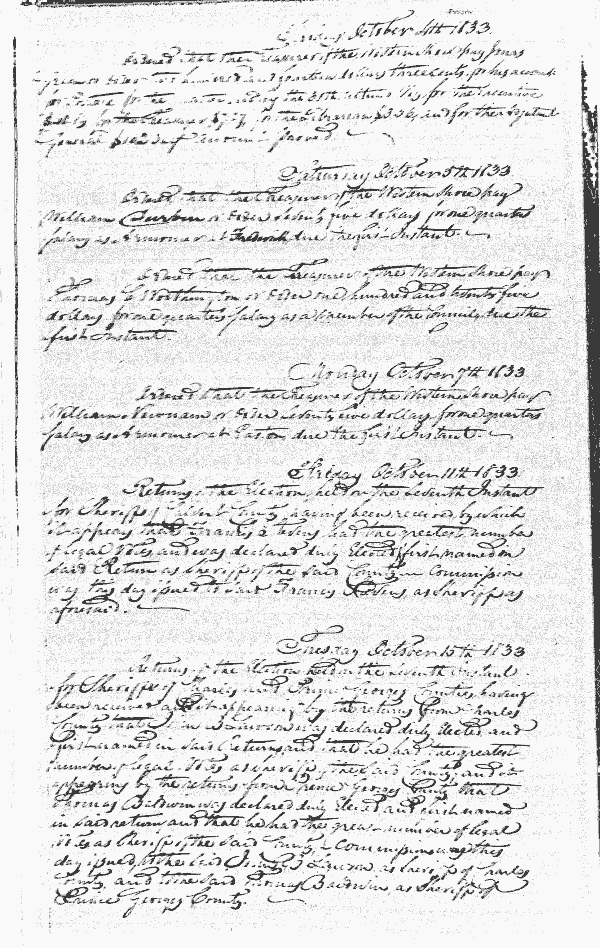 Friday October 4th 1833.
Ordered that the Treasurer of the Western Shore pay Jonas
or Order hundred and fourteen dollars three cents, for his account
for for the the 30th Viz, for the Executive
for the Treasurer for the Library $3.36, and for the Adjutant
General
Saturday October 5th 1833
Ordered that the Treasurer of the Western Shore pay
William Durbin or Order seventy five dollars for one quarters
salary as Armourer at Frederick due the first Instant.
Ordered that the Treasurer of the Western Shore pay
Thomas C Worthington or Order one hundred and twenty five
dollars for one quarters salary as a member of the Council, due the
first Instant.
Monday October 7th 1833
Ordered that the Treasurer of the Western Shore pay
William Newnam or Order seventy five dollars for one quarters
salary as Armourer at Easton due the first Instant.
Friday October 11th 1833
Returns of the Election, held on the seventh Instant
for Sheriff of Calvert County, having been received by which
it appears that Francis had the greatest number
of legal Votes, and was declared duly Elected & first named on
said Return as Sheriff of the said County Commission
was this day issued to said Francis as Sheriff as
aforesaid.
Tuesday October 15th 1833
Returns of the Election held on the seventh Instant
for Sheriffs of Charles and Prince Georges Counties having
been received and it appearing by the returns from Charles
County that Lawson was declared duly elected and
first named in said Return, and that he had the greatest
number of legal Votes as sheriff of the said County, and it
appearing by the returns from Prince Georges County that
Thomas Baldwin was declared duly Elected and first named
in said return and that he had the great number of legal
Votes as Sheriff of the said County, Commission was this
day issued, to the said as sheriff of Charles
County, and to the said Thomas Baldwin, as Sheriff of
Prince Georges County.